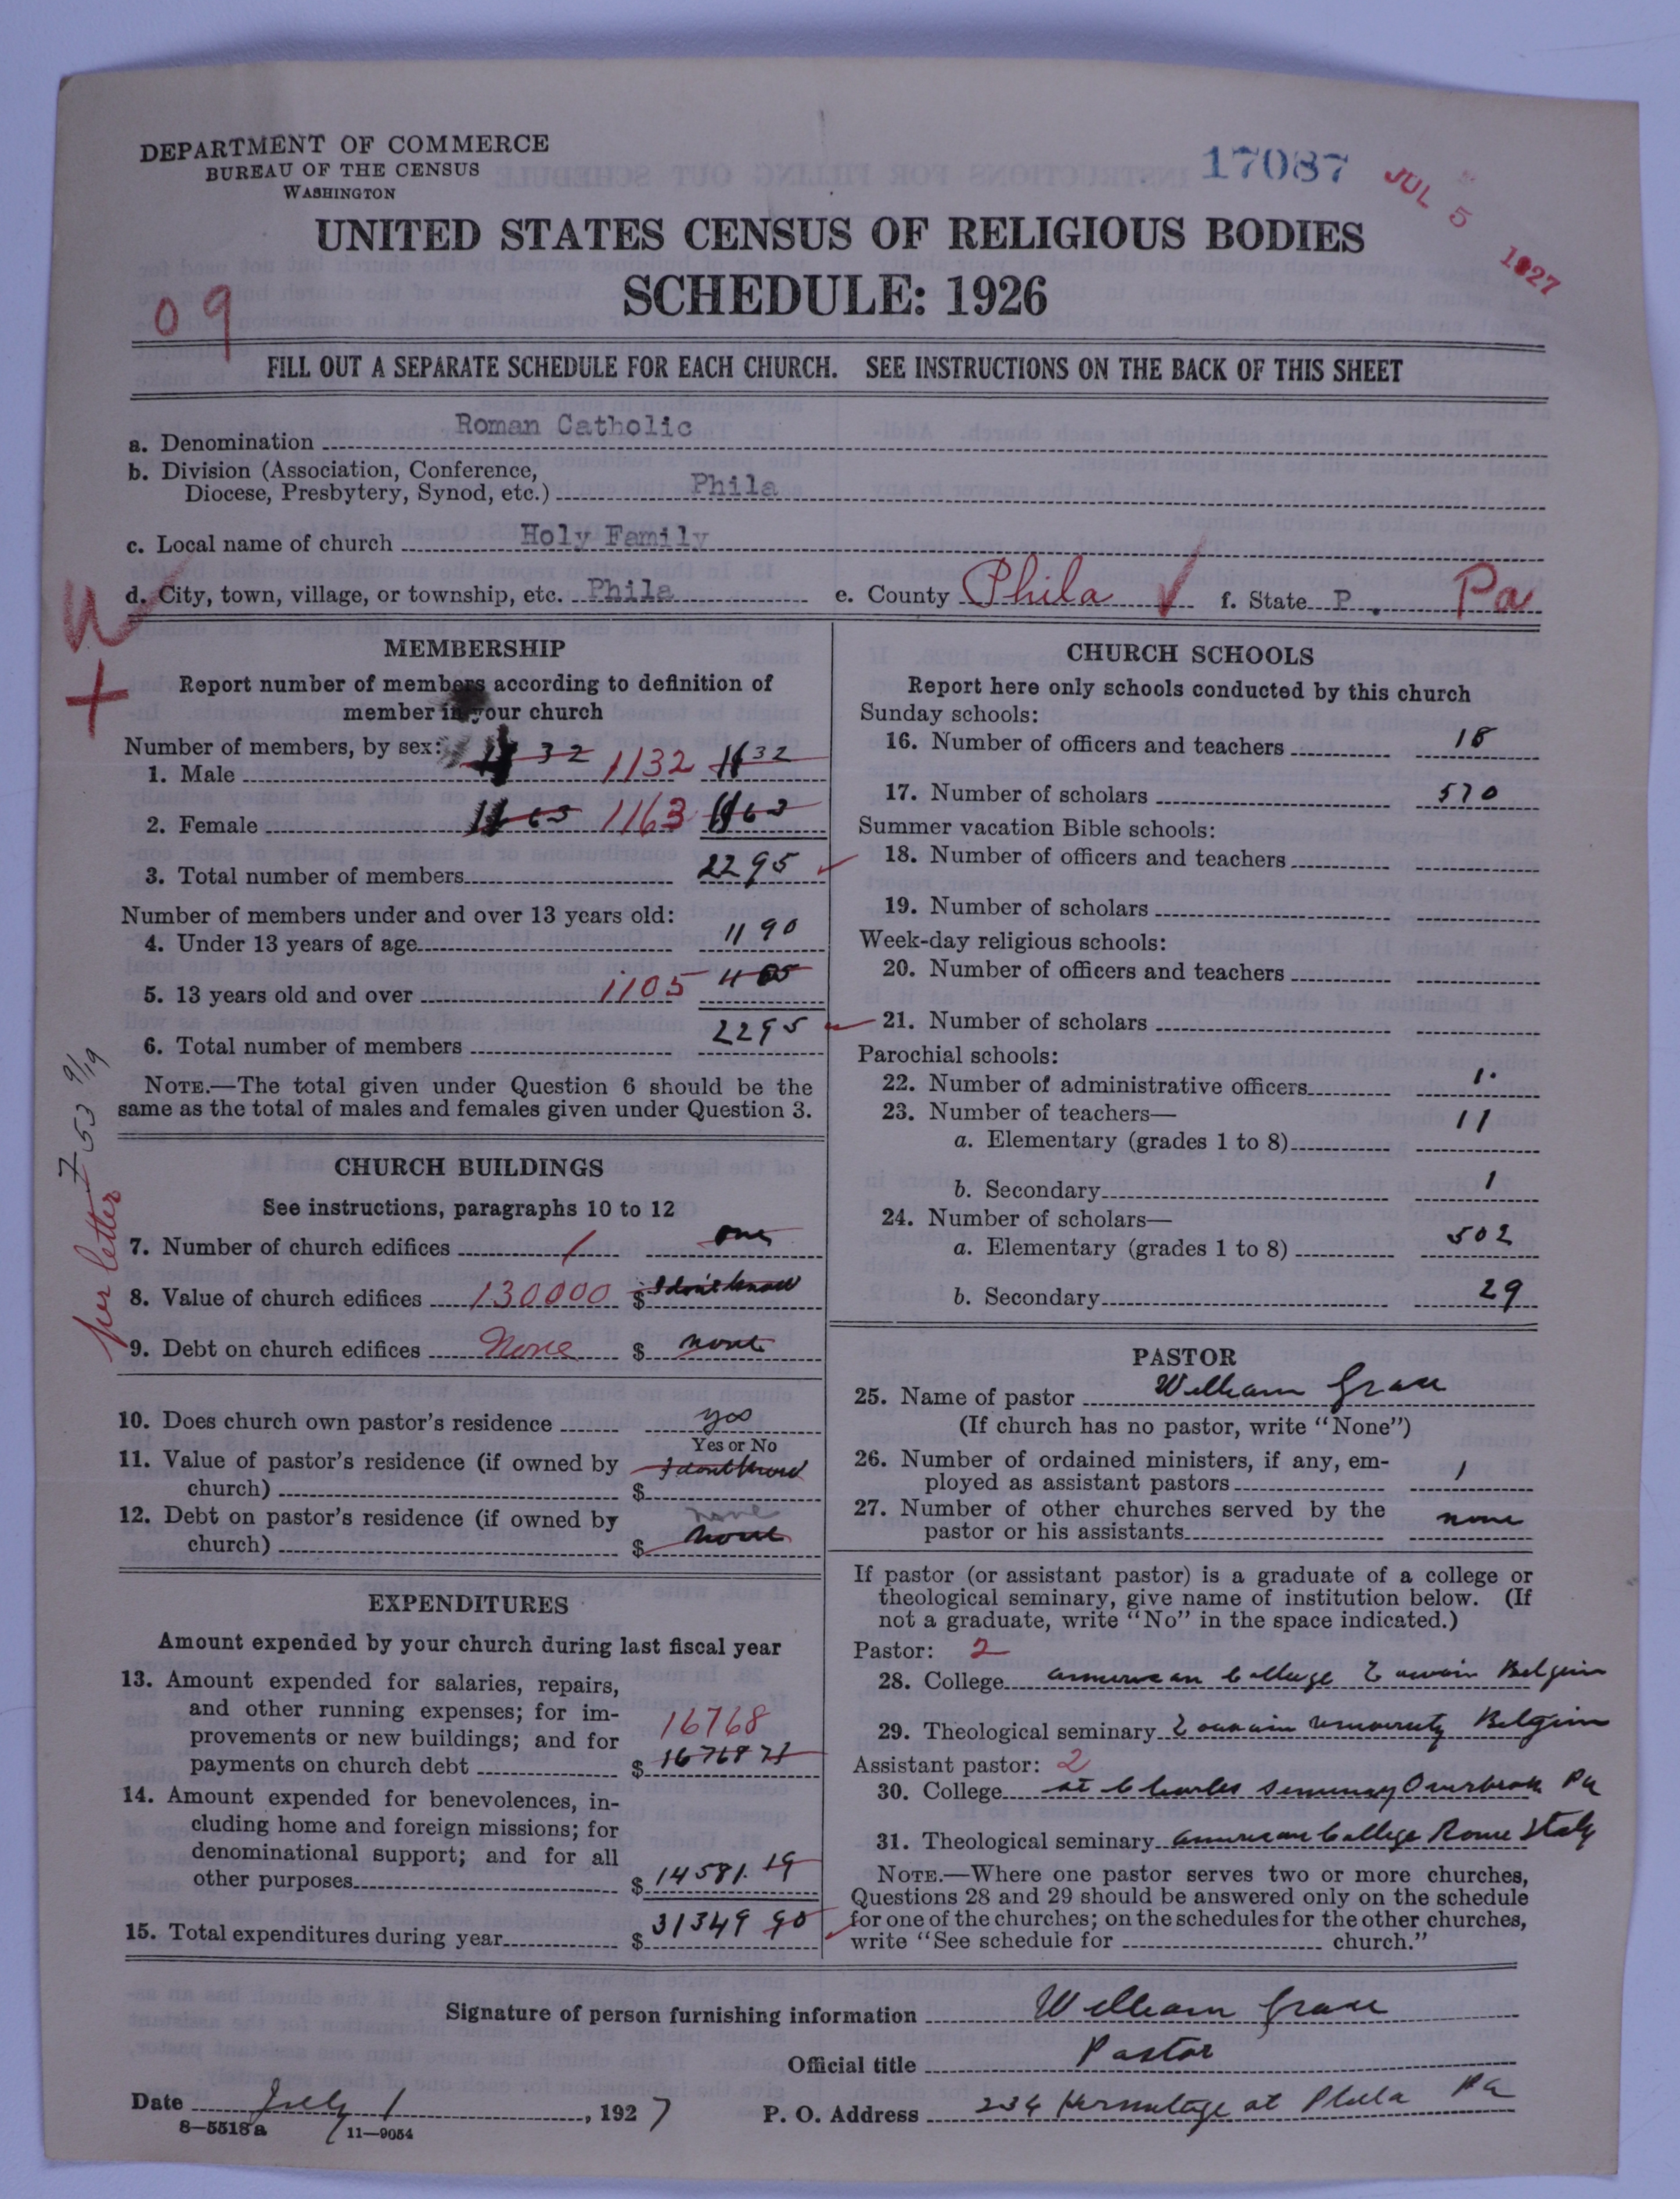 DEPARTMENT OF COMMERCE
BUREAU OF THE CENSUS
WASHINGTON
17087
JUL 5 1927
UNITED STATES CENSUS OF RELIGIOUS BODIES
SCHEDULE: 1926
09
FILL OUT A SEPARATE SCHEDULE FOR EACH CHURCH. SEE INSTRUCTIONS ON THE BACK OF THIS SHEET
a. Denomination Roman Catholic
b. Division (Association, Conference,
Diocese, Presbytery, Synod, etc.) Phila
c. Local name of church Holy Family
d. City, town, village, or township, etc. Phila e. County Phila f. State P. Pa
MEMBERSHIP
Report number of members according to definition of
member in your church
Number of members, by sex:
1. Male 1132 1132 1132
2. Female 1163 1163 1163
3. Total number of members 2295
Number of members under and over 13 years old:
4. Under 13 years of age 1190
5. 13 years old and over 1105 1105
6. Total number of members 2295
NOTE.—The total given under Question 6 should be the
same as the total of males and females given under Question 3.
per letter 7-53 9/19
CHURCH BUILDINGS
See instructions, paragraphs 10 to 12
7. Number of church edifices 1 one
8. Value of church edifices 130000 $ I don't know
9. Debt on church edifices None $ none
10. Does church own pastor's residence yes
Yes or No
11. Value of pastor's residence (if owned by
church) $ I don't know
12. Debt on pastor's residence (if owned by
church) none $ none
EXPENDITURES
Amount expended by your church during last fiscal year
13. Amount expended for salaries, repairs,
and other running expenses; for im-
provements or new buildings; and for
payments on church debt 16768 $ 16768 71
14. Amount expended for benevolences, in-
cluding home and foreign missions; for
denominational support; and for all
other purposes $ 14581.19
15. Total expenditures during year $ 31349 90
CHURCH SCHOOLS
Report here only schools conducted by this church
Sunday schools:
16. Number of officers and teachers 18
17. Number of scholars 570
Summer vacation Bible schools:
18. Number of officers and teachers
19. Number of scholars
Week-day religious schools:
20. Number of officers and teachers
21. Number of scholars
Parochial schools:
22. Number of administrative officers 1.
23. Number of teachers—
a. Elementary (grades 1 to 8) 11
b. Secondary 1
24. Number of scholars—
a. Elementary (grades 1 to 8) 502
b. Secondary 29
PASTOR
25. Name of pastor William Grace
(If church has no pastor, write "None")
26. Number of ordained ministers, if any, em-
ployed as assistant pastors 1
27. Number of other churches served by the
pastor or his assistants none
If pastor (or assistant pastor) is a graduate of a college or
theological seminary, give name of institution below. (If
not a graduate, write "No" in the space indicated.)
Pastor: 2
28. College American College Louvain Belgium
29. Theological seminary Louvain University Belgium
Assistant pastor: 2
30. College St Charles Seminary Overbrook Pa
31. Theological seminary American College Rome Italy
NOTE.—Where one pastor serves two or more churches,
Questions 28 and 29 should be answered only on the schedule
for one of the churches; on the schedules for the other churches,
write "See schedule for church."
Signature of person furnishing information William Grace
Official title Pastor
Date July 1, 1927 P. O. Address 234 Hermitage st Phila Pa
8—5518a 11—9054